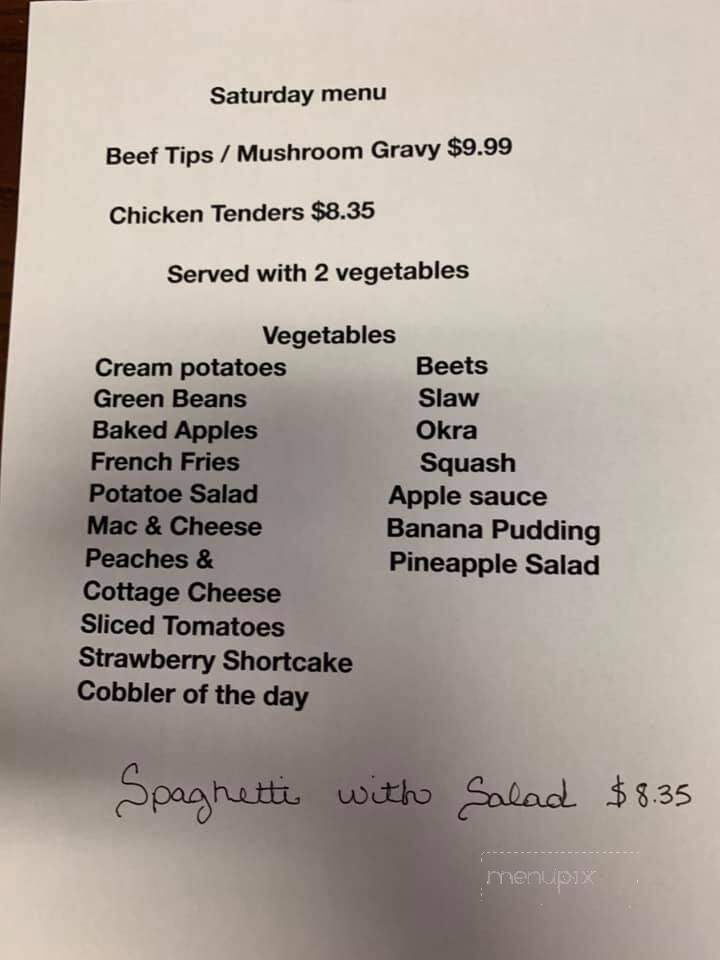 Saturday menu
Beef Tips / Mushroom Gravy $9.99
Chicken Tenders $8.35
Served with 2 vegetables
Vegetables
Cream potatoes
Green Beans
Baked Apples
French Fries
Potatoe Salad
Mac & Cheese
Peaches &
Cottage Cheese
Sliced Tomatoes
Strawberry Shortcake
Cobbler of the day
Beets
Slaw
Okra
Squash
Apple sauce
Banana Pudding
Pineapple Salad
Spaghetti with Salad $8.35
menupix